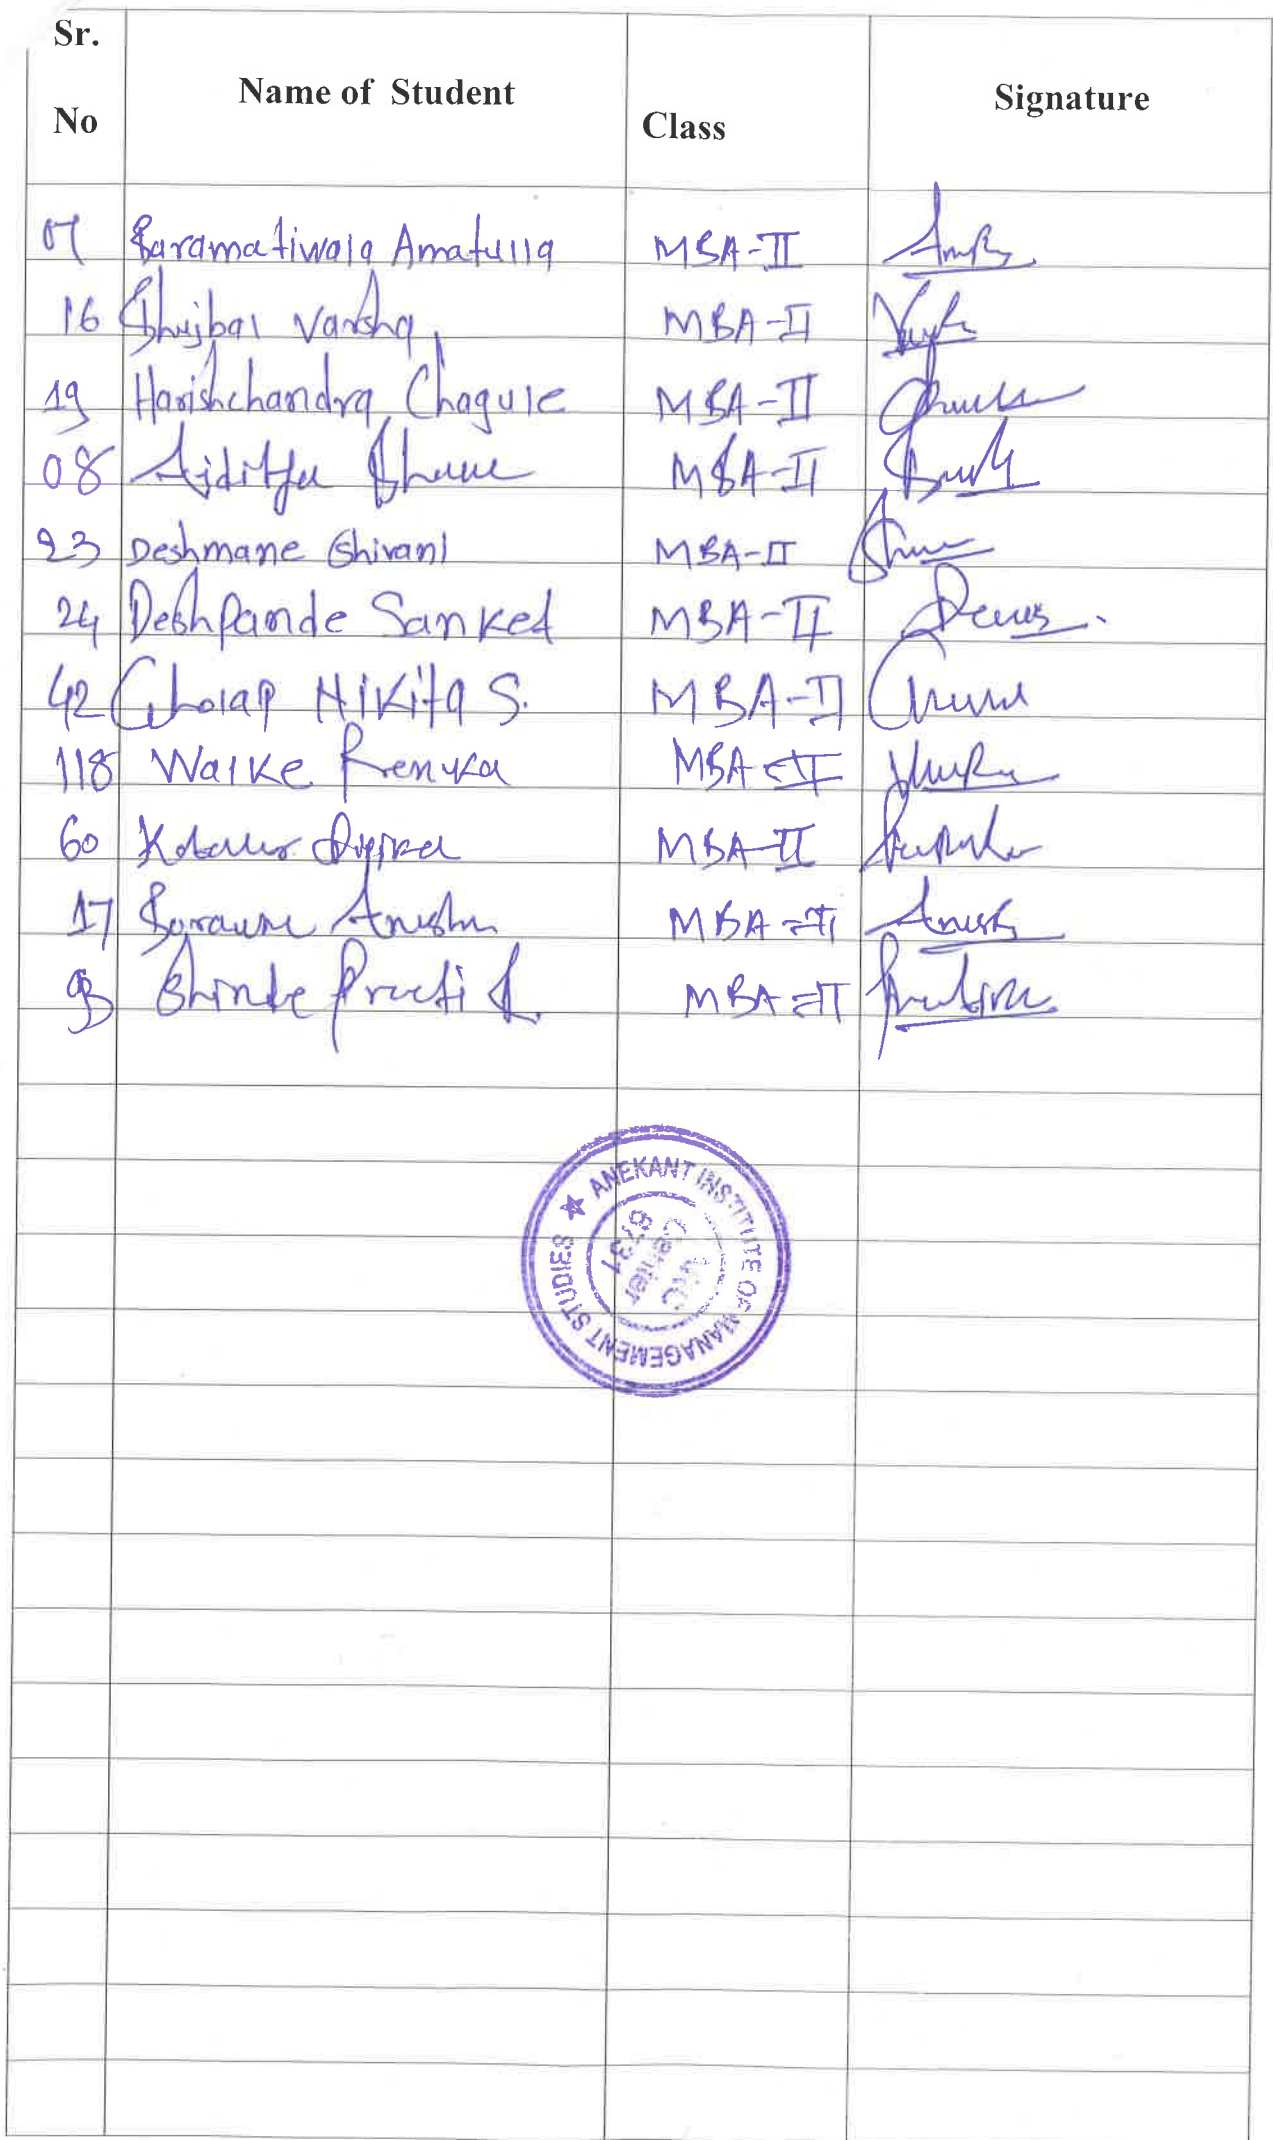 Sr. No Name of Student Class Signature
07 Baramatiwala Amatulla MBA-II
16 Bhujbal Varsha MBA-II
19 Harishchandra Chagule MBA-II
08 MBA-II
23 Deshmane Shivani MBA-II
24 Deshpande Sanket MBA-II
42 Gholap Nikita S. MBA-II
118 Walke Renuka MBA-II
60 MBA-II
17 MBA-II
Shinde MBA-II
ANEKANT INSTITUTE OF MANAGEMENT STUDIES